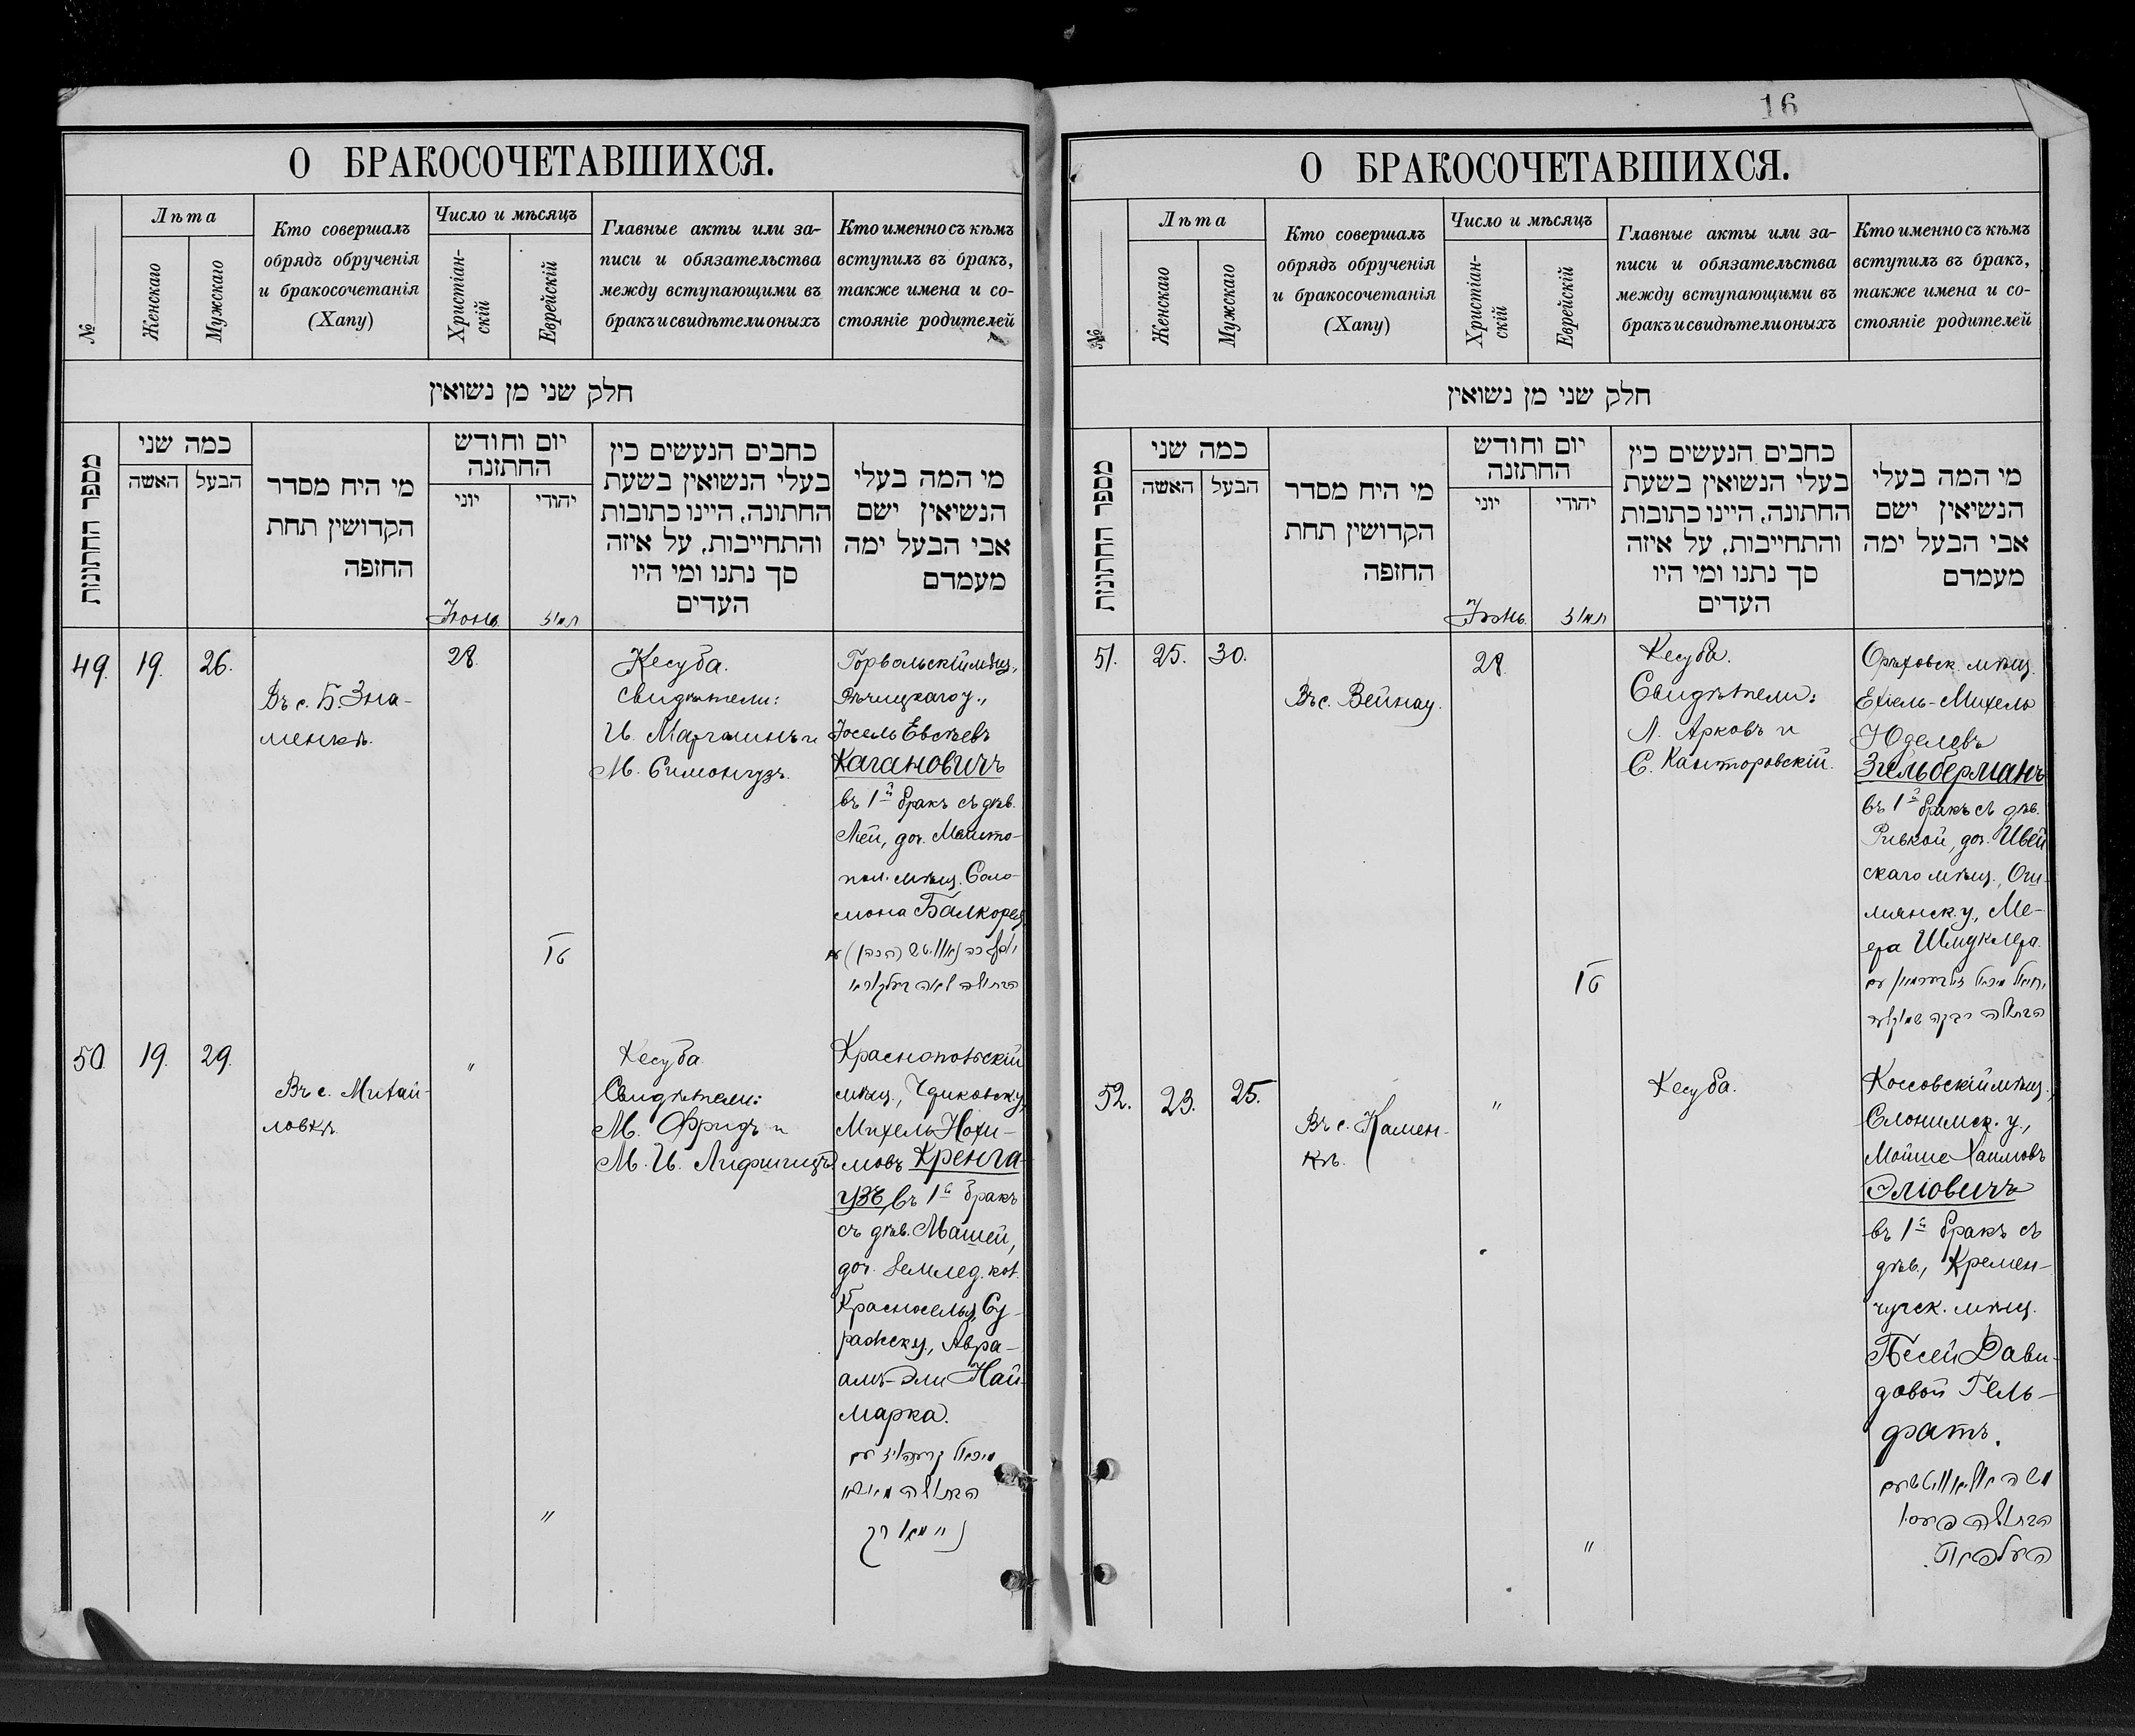 16
О БРАКОСОЧЕТАВШИХСЯ.
№
Лѣта
Женскаго
Мужскаго
Кто совершалъ
обрядъ обрученія
и бракосочетанія
(Хапу)
Число и мѣсяцъ
Христіан-
скій
Еврейскій
Главные акты или за-
писи и обязательства
между вступающими въ
бракъ и свидѣтели оныхъ
Кто именно съ кѣмъ
вступилъ въ бракъ,
также имена и со-
стояніе родителей
חלק שני מן נשואין
מספר החתונות
כמה שני
האשה
הבעל
מי היח מסדר
הקדושין תחת
החזפה
יום וחודש
החתזנה
יוני
יהודי
Іюнь.
תמוז
כחבים הנעשים כין
בעלי הנשואין בשעת
החתונה, היינו כתובות
והתחייבות, על איזה
סך נתנו ומי היו
העדים
מי המה בעלי
הנשיאין ישם
אבי הבעל ימה
מעמדם
49.
19.
26.
Въ с. Б. Зна-
менкѣ.
28.
טז
Кесуба.
Свидѣтели:
И. Марголинъ и
М. Симонгузъ.
Горвольскій мѣщ.,
Рѣчицкаго у.,
Іосель Евсѣевъ
Кагановичъ
въ 1й бракъ съ дѣв.
Леи, доч. Мелито-
пол. мѣщ. Соло-
мона Балкорея
הבתולה
50.
19.
29.
Въ с. Михай-
ловкѣ.
"
"
Кесуба.
Свидѣтели:
М. Фридъ и
М. И. Лифшицъ
Краснопольскій
мѣщ., Чериковск. у.,
Михель Нохи-
мовъ Кренга-
узъ, въ 1й бракъ
съ дѣв. Машей,
доч. землед. кол.
Красноселья, Су-
ражск. у., Авра-
амъ-Эли Най-
марка.
מיכאל קרענהויז עם
הבתולה
ניימארק
О БРАКОСОЧЕТАВШИХСЯ.
№
Лѣта
Женскаго
Мужскаго
Кто совершалъ
обрядъ обрученія
и бракосочетанія
(Хапу)
Число и мѣсяцъ
Христіан-
скій
Еврейскій
Главные акты или за-
писи и обязательства
между вступающими въ
бракъ и свидѣтели оныхъ
Кто именно съ кѣмъ
вступилъ въ бракъ,
также имена и со-
стояніе родителей
חלק שני מן נשואין
מספר החתונות
כמה שני
האשה
הבעל
מי היח מסדר
הקדושין תחת
החזפה
יום וחודש
החתזנה
יוני
יהודי
Іюнь.
תמוז
כחבים הנעשים כין
בעלי הנשואין בשעת
החתונה, היינו כתובות
והתחייבות, על איזה
סך נתנו ומי היו
העדים
מי המה בעלי
הנשיאין ישם
אבי הבעל ימה
מעמדם
51.
25.
30.
Въ с. Вейнау.
28
טז
Кесуба.
Свидѣтели:
Л. Арковъ и
С. Канторовскій.
Орѣховск. мѣщ.
Ехіель-Михель
Юделевъ
Зильберманъ
въ 1й бракъ съ дѣв.
Ривкой, доч. Ивей
скаго мѣщ., Ош-
мянск. у., Ме-
ера Шмуклера.
יחיאל מיכאל זילבערמאן עם
הבתולה רבקה שמוקלער
52.
23.
25.
Въ с. Камен-
кѣ.
"
"
Кесуба.
Коссовскій мѣщ.,
Слонимск. у.,
Мойше Хаимовъ
Эліовичъ
въ 1й бракъ съ
дѣв., Кремен-
чугск. мѣщ.
Песей Дави-
довой Гель-
фатъ.
משה עליאוויטש עם
הבתולה פעסי
העלפאט.